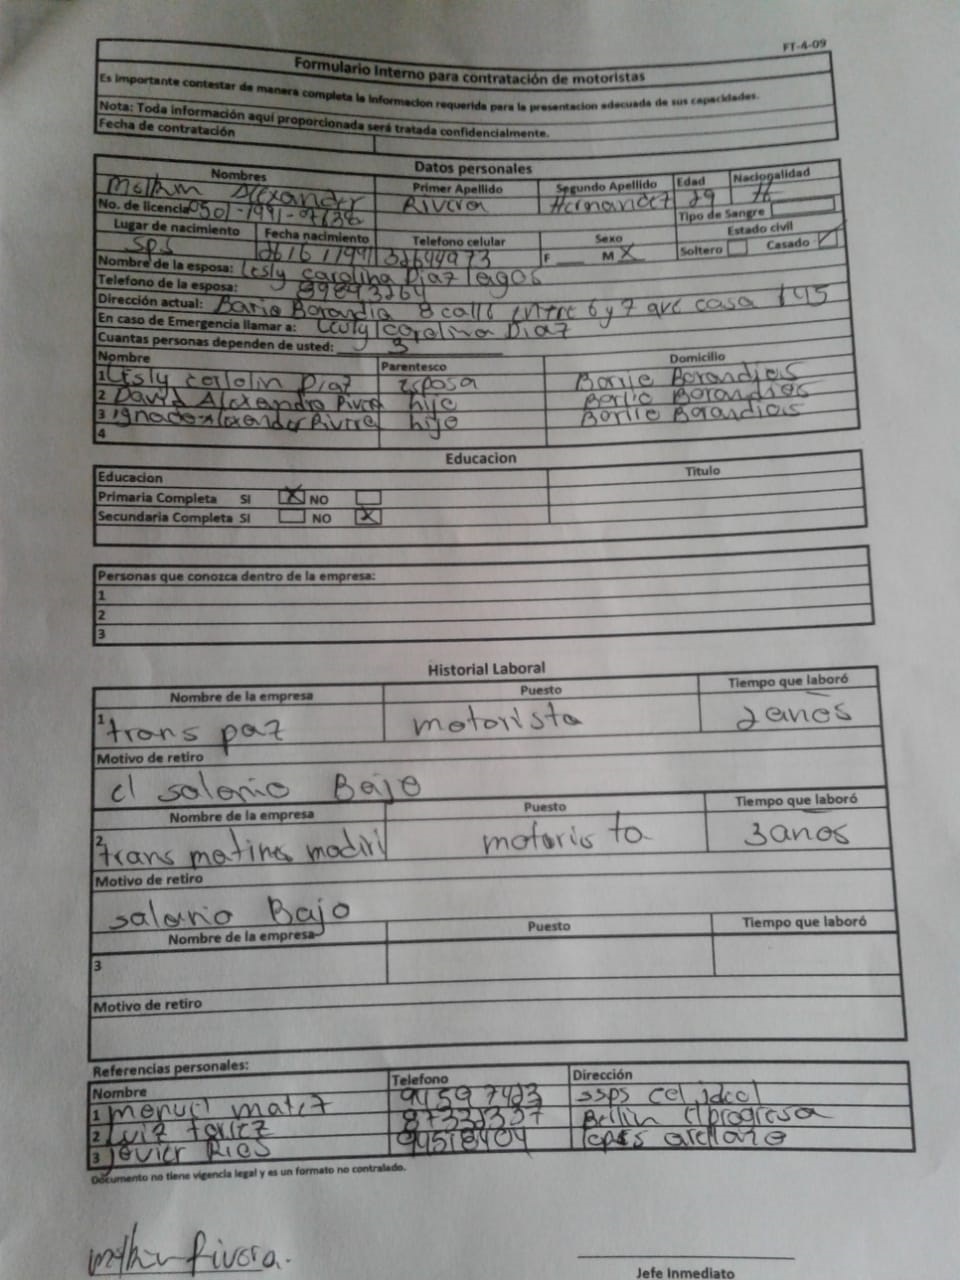 FT-4-09
Formulario Interno para contratación de motoristas
Es importante contestar de manera completa la informacion requerida para la presentacion adecuada de sus capacidades.
Nota: Toda información aquí proporcionada será tratada confidencialmente.
Fecha de contratación
Datos personales
Nombres Primer Apellido Segundo Apellido Edad Nacionalidad
Alexander Rivera Hernandez 29 H
No. de licencia 0501-1991-07138 Tipo de Sangre
Lugar de nacimiento Fecha nacimiento Telefono celular Sexo Estado civil
SPS 1991 32644973 F M X Soltero Casado
Nombre de la esposa: Lesly carolina Diaz lagos
Telefono de la esposa: 99893264
Dirección actual: Bario Borandia 8 calle entre 6 y 7 ave casa
En caso de Emergencia llamar a: Lesly carolina Diaz
Cuantas personas dependen de usted: 3
Nombre Parentesco Domicilio
1 Lesly Diaz esposa Borrie Borandias
2 David Alexandro River hijo Borrio Borandias
3 Alexander Rivera hijo Borrio Borandias
4
Educacion
Educacion Titulo
Primaria Completa SI X NO
Secundaria Completa SI NO X
Personas que conozca dentro de la empresa:
1
2
3
Historial Laboral
Nombre de la empresa Puesto Tiempo que laboró
1 trans paz motorista 2 años
Motivo de retiro
el salario Bajo
Nombre de la empresa Puesto Tiempo que laboró
2 trans motorista 3 años
Motivo de retiro
salario Bajo
Nombre de la empresa Puesto Tiempo que laboró
3
Motivo de retiro
Referencias personales:
Nombre Telefono Dirección
1 menuel 9459 7423
2 87335337 progreso
3 javier Rios 94518404
Documento no tiene vigencia legal y es un formato no contralado.
Rivera.
Jefe Inmediato